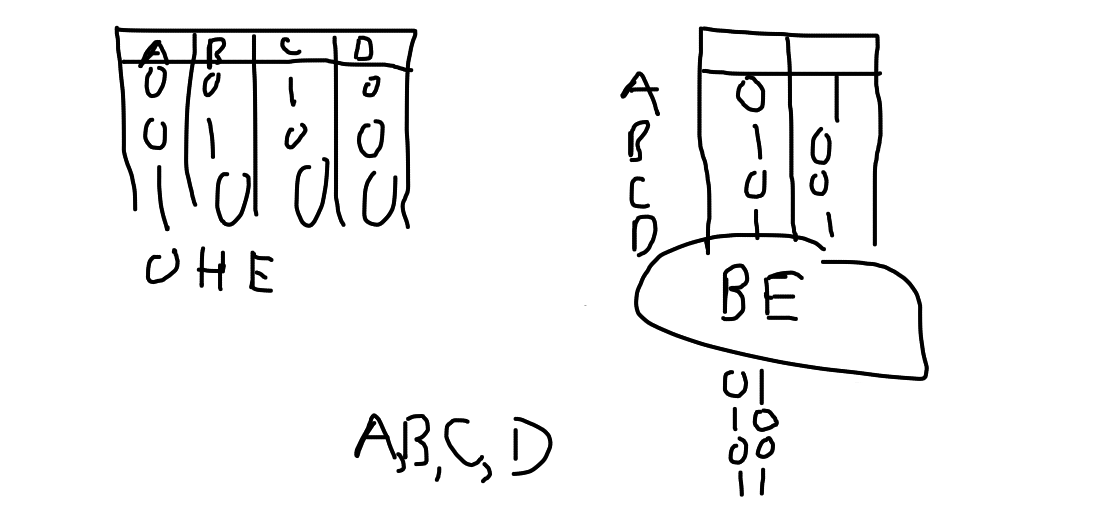 A B C D
0 0 1 0
0 1 0 0
1 0 0 0
OHE
A 0 1
B 1 0
C 0 0
D 1 1
BE
01
10
00
11
A,B,C,D